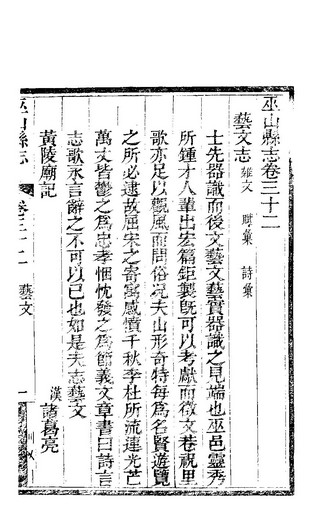 巫山縣志卷三十二
藝文志 雜文 賦彙 詩彙
士先器識而後文藝文藝實器識之見端也巫邑靈秀
所鍾才人輩出宏篇鉅製旣可以考獻而徵文巷祝里
歌亦足以觀風而問俗况夫山形奇特每為名賢遊覽
之所必逮故屈宋之寄寓感憤千秋李杜所流連光芒
萬丈皆鬱之為忠孝悃忱發之為節義文章書曰詩言
志歌永言辭之不可以已也如是夫志藝文
黃陵廟記
漢 諸葛亮
巫山縣志 卷三十二 藝文 一